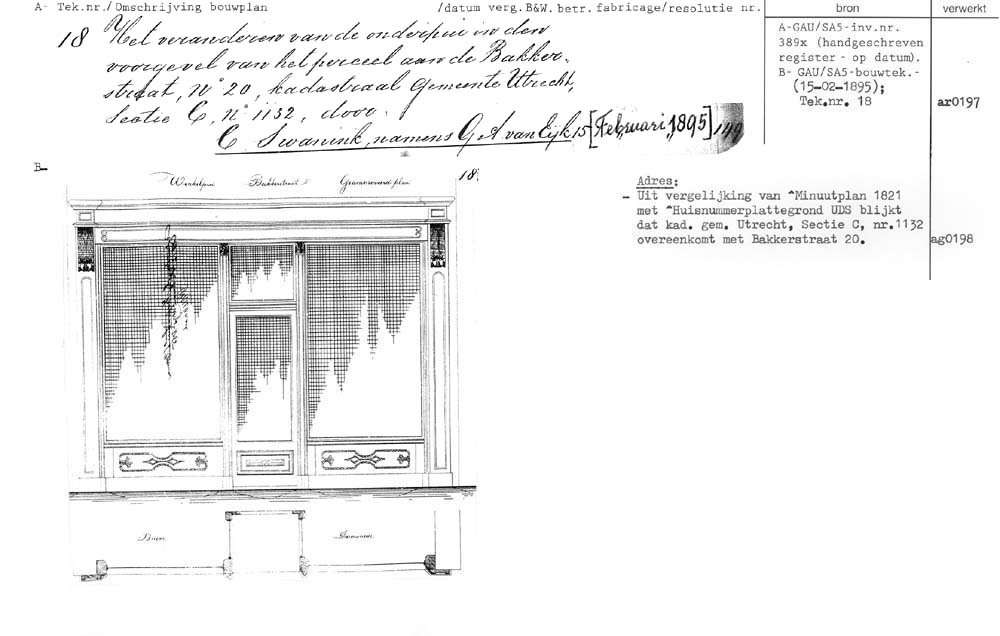 A- Tek.nr./Omschrijving bouwplan /datum verg.B&W.betr.fabricage/resolutie nr. bron verwerkt
18 Het veranderen van de onderpui in den
voorgevel van het perceel aan de Bakker-
straat, No 20, kadastraal Gemeente Utrecht,
Sectie C, No 1132, door
C. Swanink, namens G. A. van Eijk 15 [Februari, 1895] 199
A-GAU/SA5-inv.nr.
389x (handgeschreven
register - op datum).
B- GAU/SA5-bouwtek.-
(15-02-1895);
Tek.nr. 18 ar0197
B-
Winkelpui Bakkerstraat 18.
Adres:
- Uit vergelijking van ^Minuutplan 1821
met ^Huisnummerplattegrond UDS blijkt
dat kad. gem. Utrecht, Sectie C, nr.1132
overeenkomt met Bakkerstraat 20. ag0198